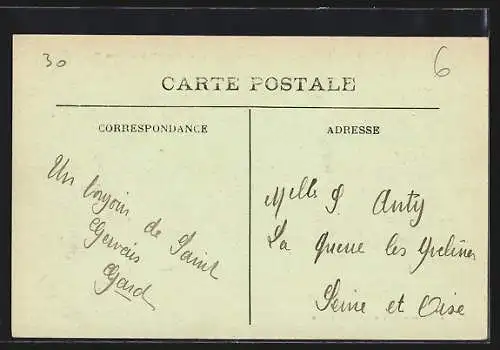 30
6
CARTE POSTALE
CORRESPONDANCE
ADRESSE
Un bonjour de Saint
Gervais
Gard
Melle S. Anty
La Queue les Yvelines
Seine et Oise